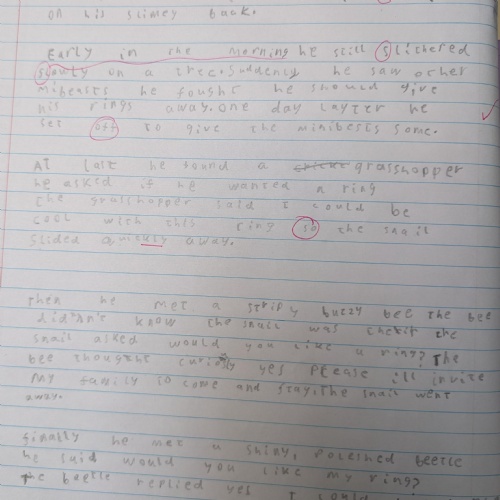 on his slimey back.
Early in the morning he still slithered
slowly on a tree. Suddenly he saw other
minbeasts he fought he should give
his rings away. One day layter he
set off to give the minibests some.
At last he found a grasshopper
he asked if he wanted a ring
The grasshopper said I could be
cool with this ring so the snail
slided quickly away.
Then he met a stripy buzzy bee the bee
know the snail was the
snail asked would you like a ring? The
bee thought yes please ill invite
my family to come and stay. The snail went
away.
finally he met a shiny, poleshed beetle
he said would you like my ring?
The beetle replied yes I would